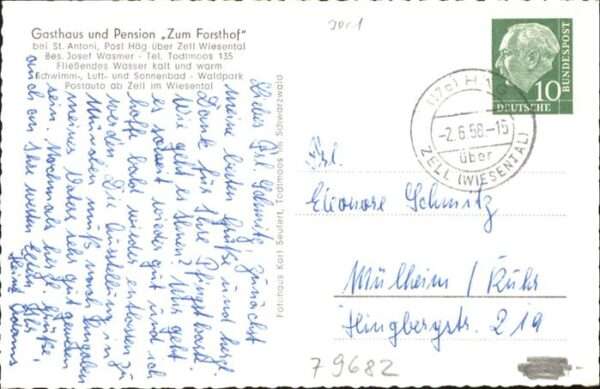 Gasthaus und Pension „Zum Forsthof"
bei St. Antoni, Post Häg über Zell Wiesental
Bes. Josef Wasmer - Tel. Todtmoos 135
Fließendes Wasser kalt und warm
Schwimm-, Luft- und Sonnenbad - Waldpark
Postauto ab Zell im Wiesental
Liebes Frl. Schmitz, zunächst
meine besten Grüße und herzl.
Dank für Ihre Pfingstkarte.
Wie geht es Ihnen? Mir geht
es soweit wieder gut und ich
hoffe bald wieder entlassen zu
werden. Die Ausstellung in
München muß nach Angaben
meines Vaters sehr gut gewesen
sein. Nochmals herzl. Grüße,
auch an Ihre werten Eltern, Ihr
Heinz
Fotohaus Karl Seufert, Todtmoos im Schwarzwald
10
DEUTSCHE
BUNDESPOST
(17b)
-2.6.58-15
über
ZELL (WIESENTAL)
Frl.
Eleonore Schmitz
Mülheim / Ruhr
Klingbergstr. 219
79682